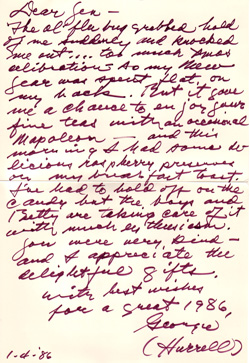 Dear Gen —
The ol' flu bug grabbed hold
of me suddenly and knocked
me out... too much Xmas
alibration so my New
Year was spent flat on
my back. But it gave
me a chance to enjoy your
fine teas with an occasional
Napoleon — and this
morning I had some de
licious raspberry preserves
on my breakfast toast.
I've had to hold off on the
candy but the boys and
Betty are taking care of it
with much enthusiasm.
You were very kind —
and I appreciate the
delightful gifts.
With best wishes
for a great 1986,
George
(Hurrell)
1-4-'86